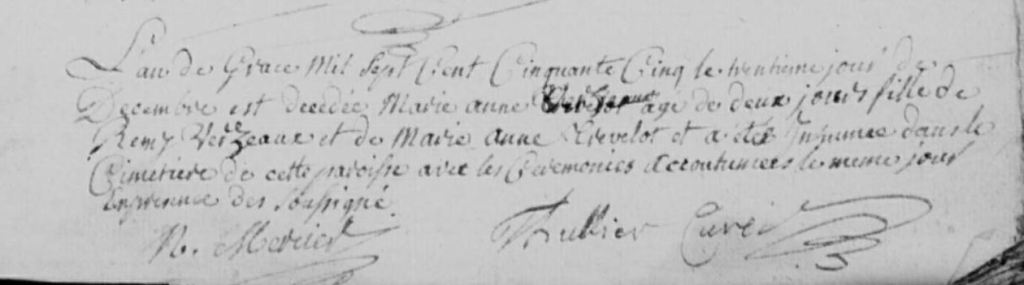 L'an de Grace Mil Sept Cent Cinquante Cinq le trentieme jour de
Decembre est decedée Marie anne Verzeaux age de deux jours fille de
Remy Verzeaux et de Marie Anne Crevelot et a eté Inhumée dans le
Cimetiere de cette paroisse avec les Ceremonies accoutumées le meme jour
En presence des soussigné
N. Mercier Thullier Curé